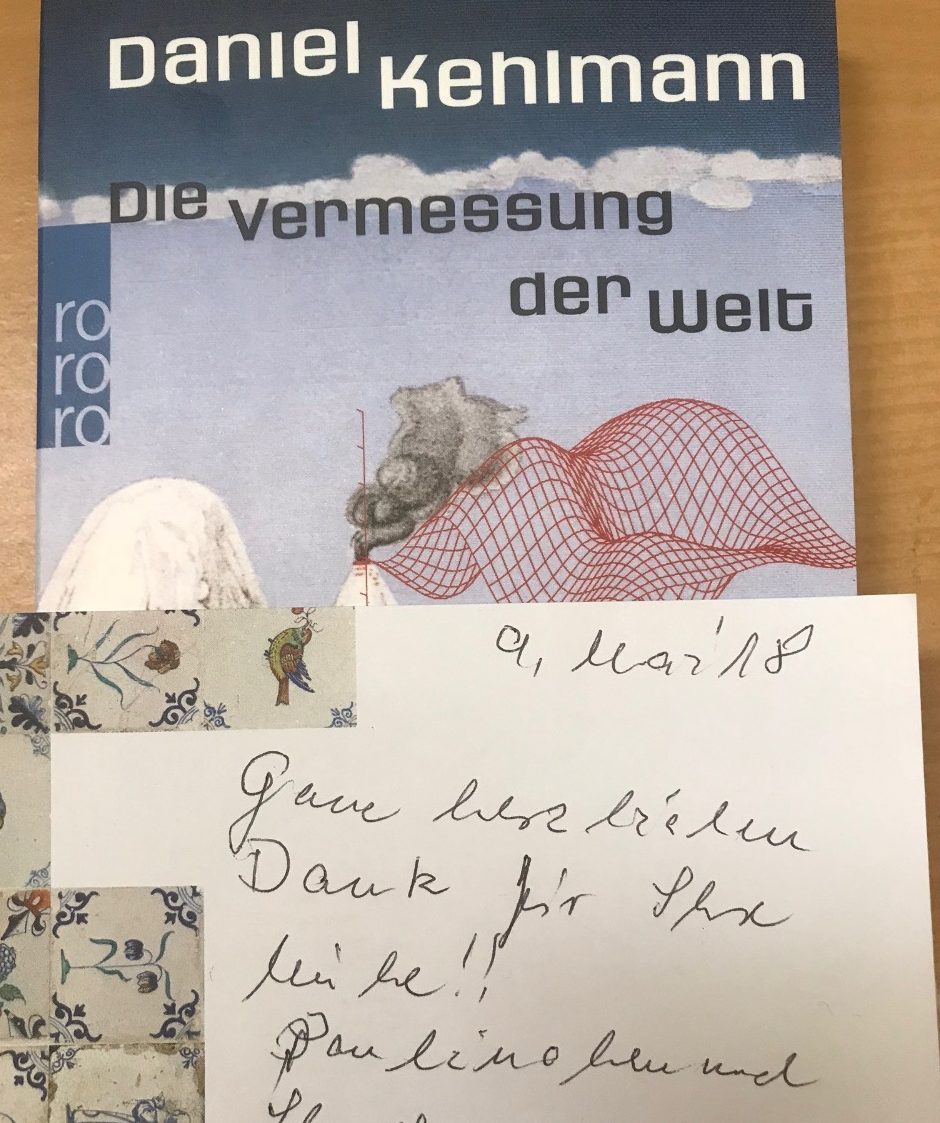 Daniel Kehlmann
Die Vermessung
der Welt
ro
ro
ro
9. Mai '18
Ganz herzlichen
Dank für Ihre
Mühe!!
und